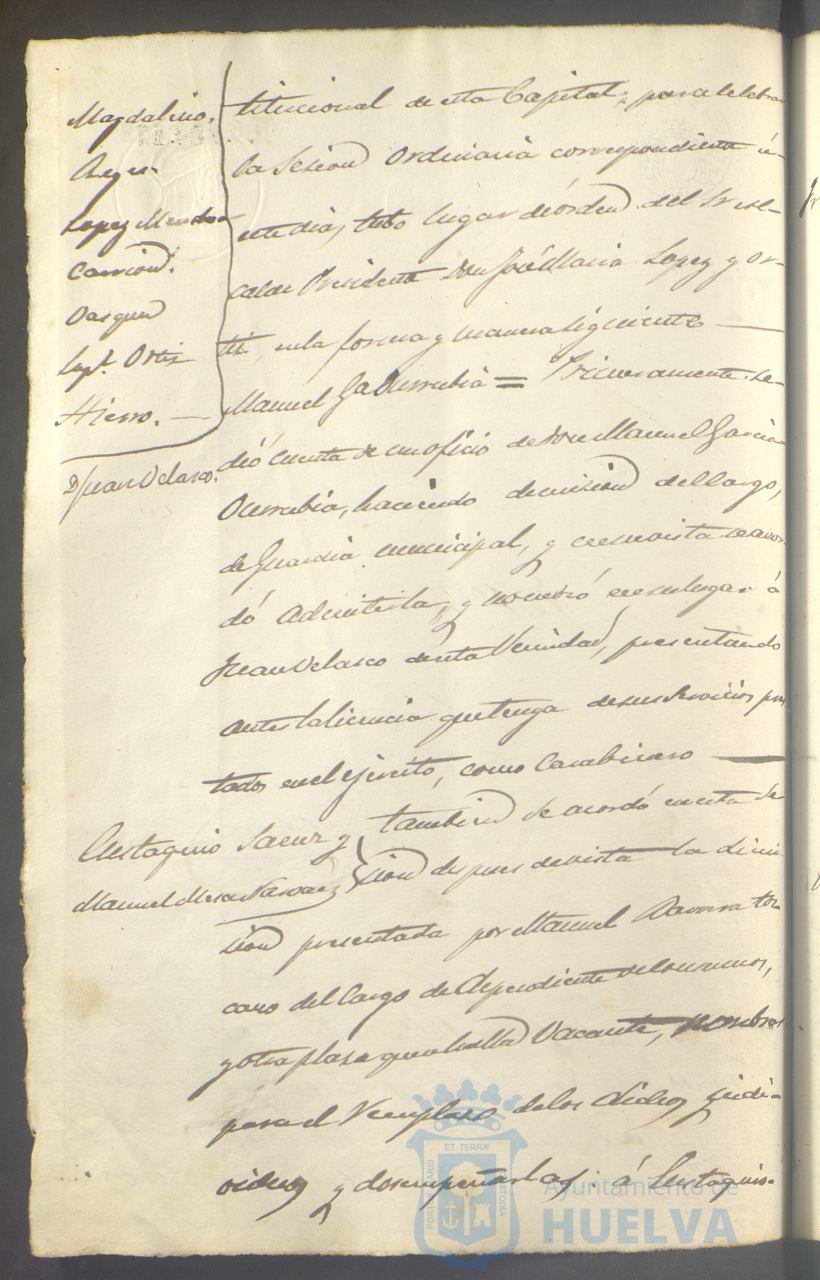 Magdaleno.
Reyes.
Lopez Mendoza
Carrion.
Vazquez
Supt. Ortiz
Hierro. —
D. Juan Velasco.
titucional de esta Capital, para celebrar
la Sesion Ordinaria correspondiente á
este dia, tubo lugar de órden del Sr. Al-
calde Presidente Don José Maria Lopez y Or-
tiz, en la forma y manera siguiente —
Manuel Ga Ourrubia = Primeramente se
dió cuenta de un oficio de Don Manuel Garcia
Ourrubia, haciendo dimision del cargo,
de Guardia municipal, y en su vista se acor-
dó admitirla, y nombró en su lugar á
Juan Velasco de esta Vecindad, presentando
antes la licencia que tenga de sus servicios pres
tados en el Ejército, como Carabinero —
Eustaquio Saenz y
Manuel Mesa Narvaez
tambien se acordó en esta Se
sion despues de vista la dimi
sion presentada por Manuel Barrera
del Cargo de Dependiente de Consumos,
y otra plaza que se halla Vacante, nombrar
para el reemplazo de los dichos indi-
viduos y desempeñarlas: á Eustaquio
PORTUS MARIS
ET TERRÆ
CUSTODIA
Ayuntamiento de
HUELVA